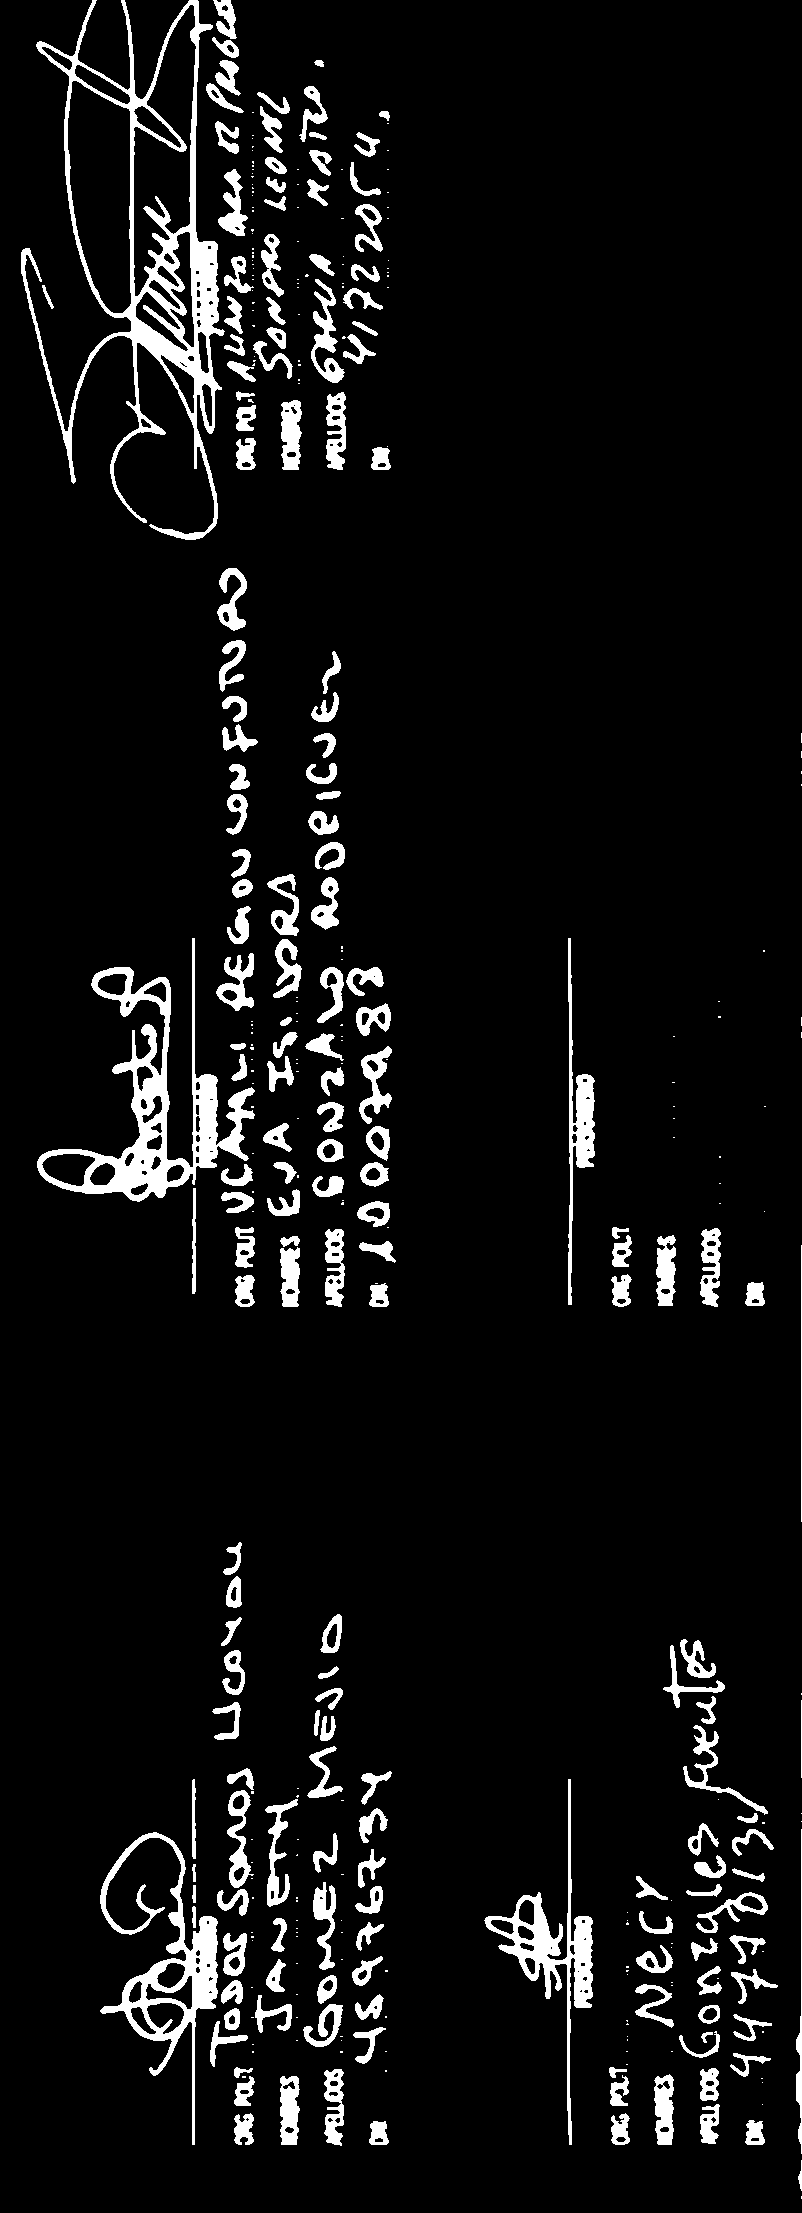 PERSONERO
ORG. POLIT TODOS SOMOS UCAYALI
NOMBRES JANETH
APELLIDOS GOMEZ MEJIA
DNI 45976734
PERSONERO
ORG. POLIT UCAYALI REGION CON FUTURO
NOMBRES EVA ISIDORA
APELLIDOS GONZALO RODRIGUEZ
DNI 10007983
PERSONERO
ORG. POLIT ALIANZA PARA EL PROGRESO
NOMBRES SANDRO LEONEL
APELLIDOS GARCIA MATEO.
DNI 41722054.
PERSONERO
ORG. POLIT
NOMBRES NECY
APELLIDOS Gonzales fuentes
DNI 44778134
PERSONERO
ORG. POLIT
NOMBRES
APELLIDOS
DNI